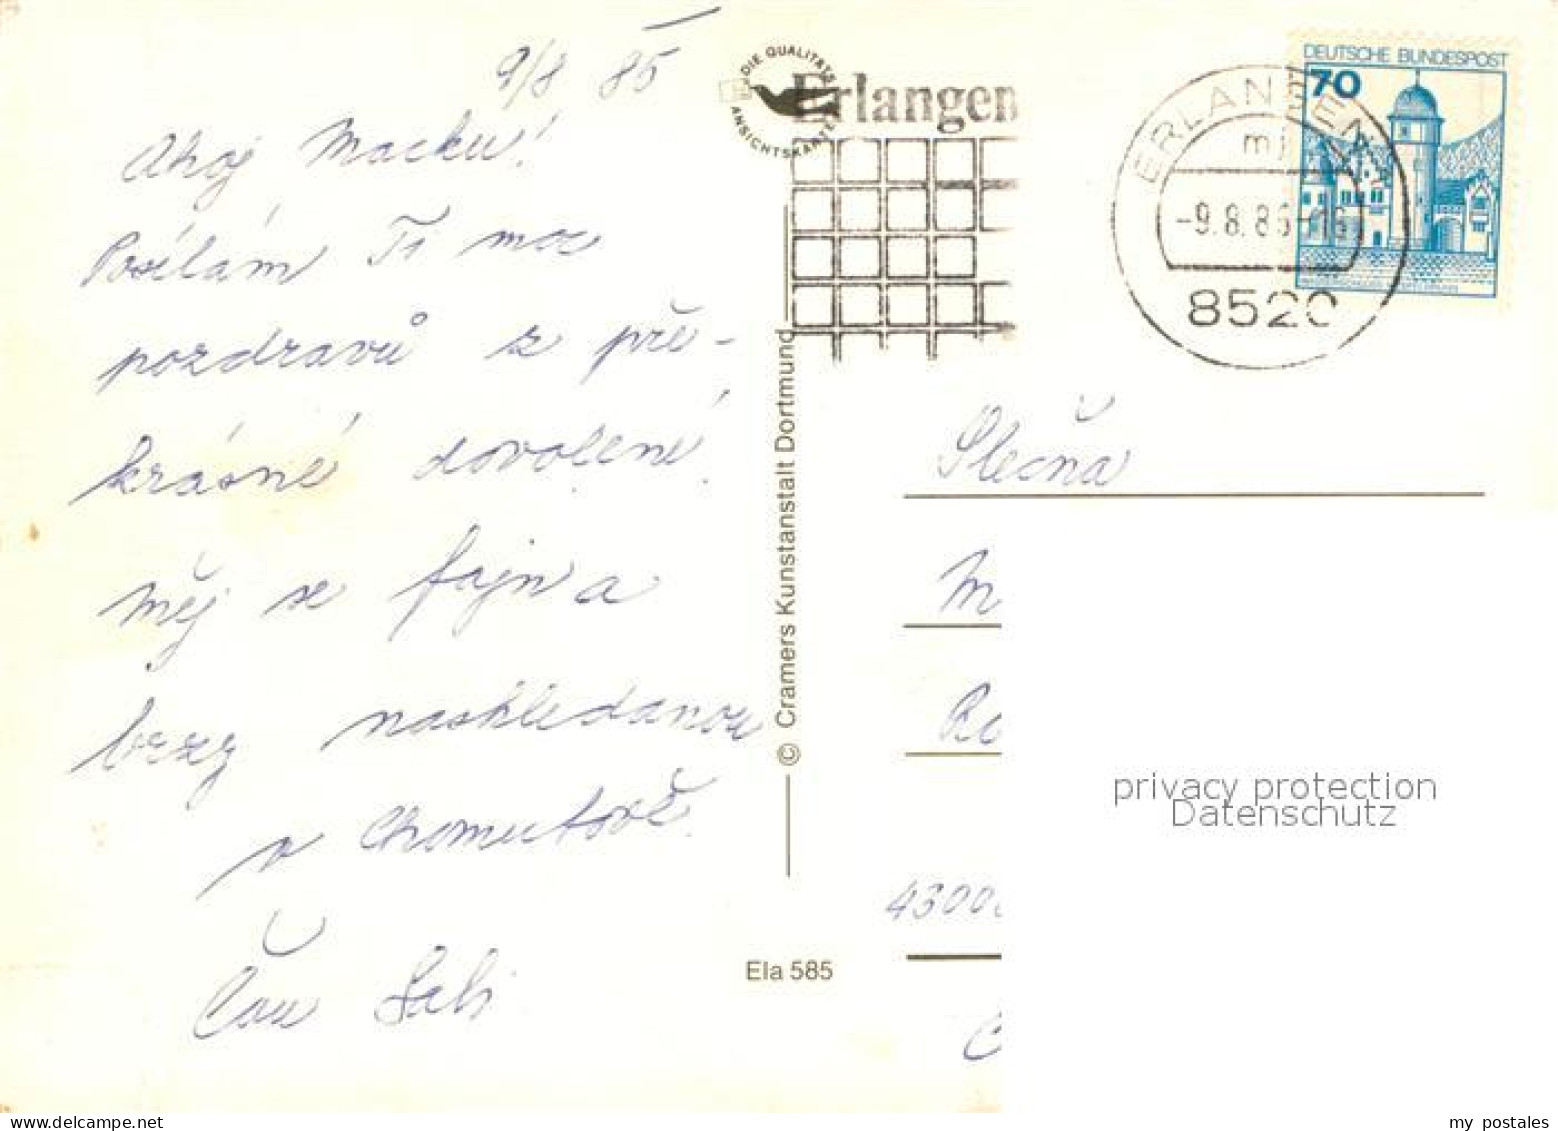 9/8 85
Ahoj Macku!
Posílám Ti moc
pozdravů z pře-
krásné dovolené!
Měj se fajn a
brzy nashledanou
v Chomutově.
Čau
DIE QUALITÄTS
ANSICHTSKARTE
Erlangen
© Cramers Kunstanstalt Dortmund
Ela 585
DEUTSCHE BUNDESPOST
70
ERLANGEN
mj
-9.8.85-16
8520
Slečna
M
Ro
4300
privacy protection
Datenschutz
my postales